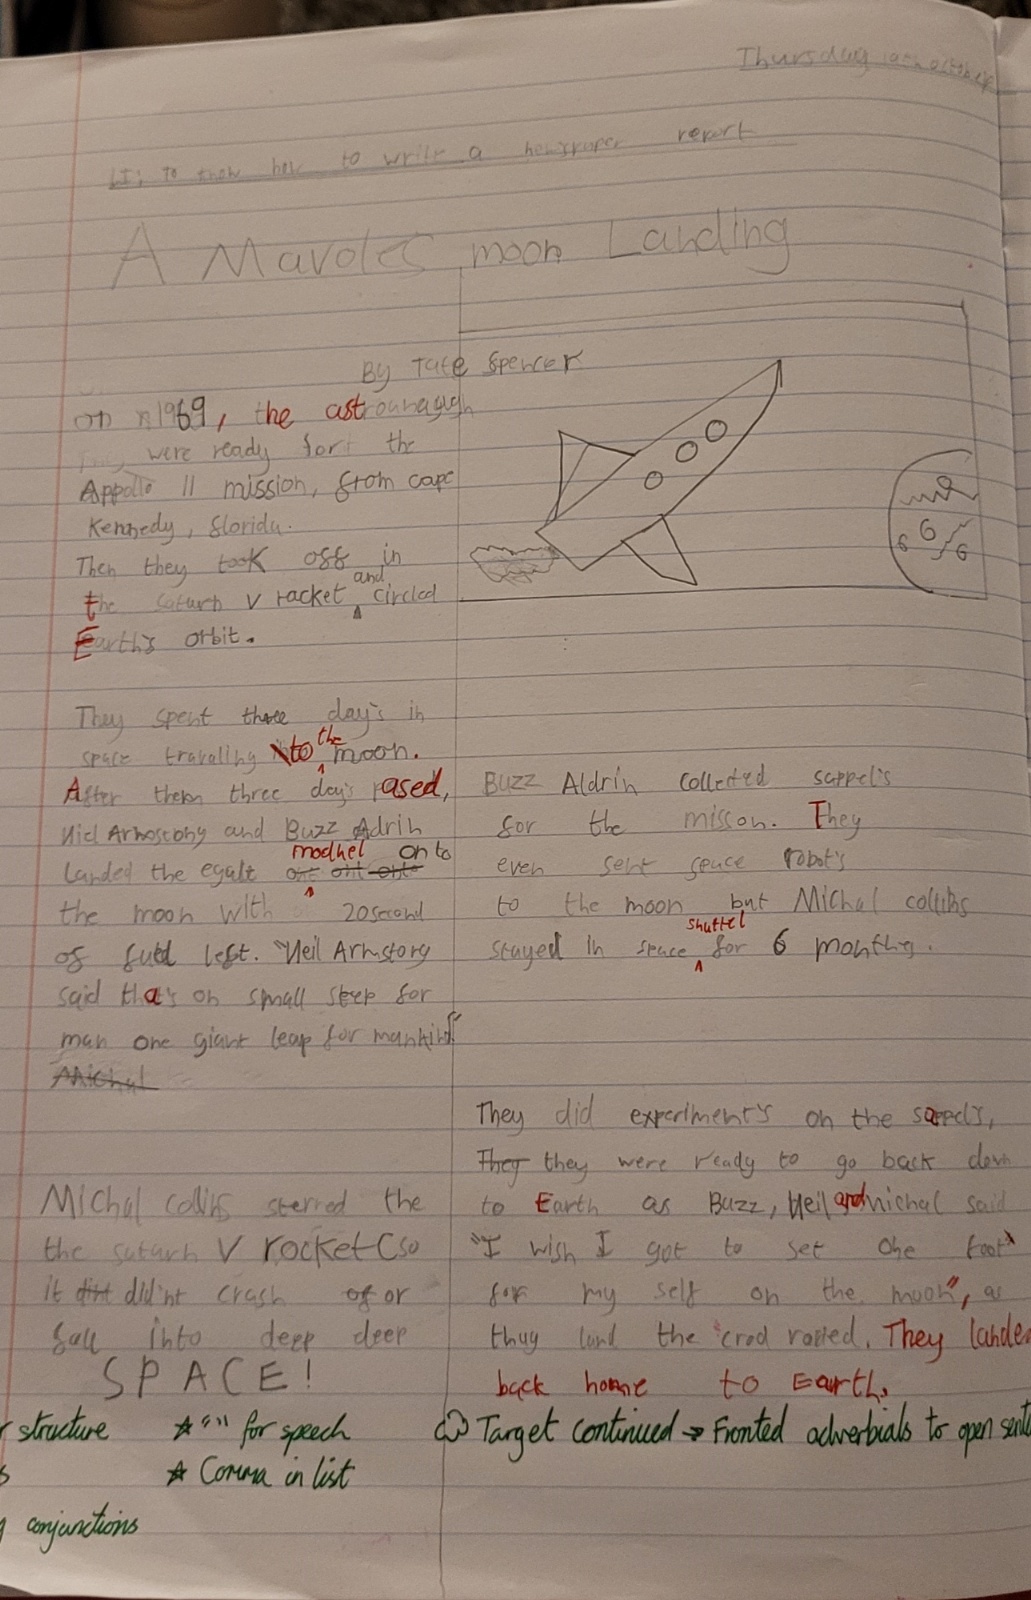 Thursday 19th october
LI: To know how to write a newspaper report
A Mavoles moon Landing
By Tate Spencer
on 1969, the astrounaugh
were ready for the
Appollo 11 mission, from cape
Kennedy, florida.
Then they took off in
the saturn V racket and circled
Earth's orbit.
They spent three day's in
space traveling to the moon.
After them three day's rased,
Niel Armostony and Buzz Adrin
landed the egalt modhel onto
the moon with 20second
of futd left. "Neil Armstory
said that's on small step for
man one giant leap for mankind"
Michal
Michal collins sterred the
the saturn V rocket so
it did'nt crash of or
fall into deep deep
SPACE!
Buzz Aldrin collected sappel's
for the misson. They
even sent space robot's
to the moon but Michal collins
stayed in space shuttel for 6 months.
They did experiment's on the sappel's,
They they were ready to go back down
to Earth as Buzz, Neil and michal said
"I wish I got to set one foot
for my self on the moon", as
thuy land the crod rored. They lande
back home to Earth.
structure ☆ " " for speech
☆ Comma in list
conjunctions
Target continued → Fronted adverbials to open sent